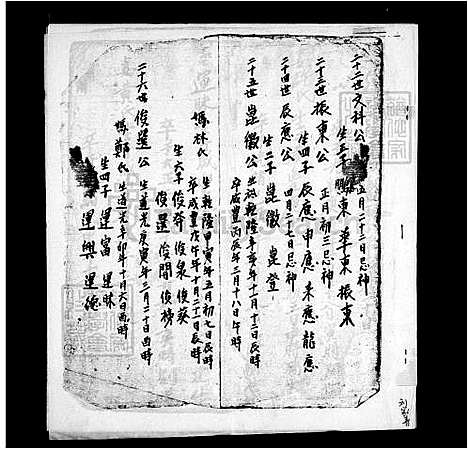 二十二世文科公 五月二十二日忌神
生五子 東 華東 振東
二十三世振東公 正月初三忌神
生四子 辰應 申應 未應 龍應
二十四世辰應公 四月二十七日忌神
生二子 崑徽 崑登
二十五世崑徽公 生於乾隆辛亥年十一月十二日辰時
卒咸豐丙辰年二月十八日午時
媽林氏 生乾隆甲寅年五月初七日辰時
卒咸豐戊午年十一月二十二日辰時
生六子 俊 俊泉 俊葵
俊選 俊開 俊榜
二十六世俊選公 生道光庚寅年三月二十日酉時
媽鄭氏 生道光辛卯年十月六日酉時
生四子 運富 運昧
運興 運德